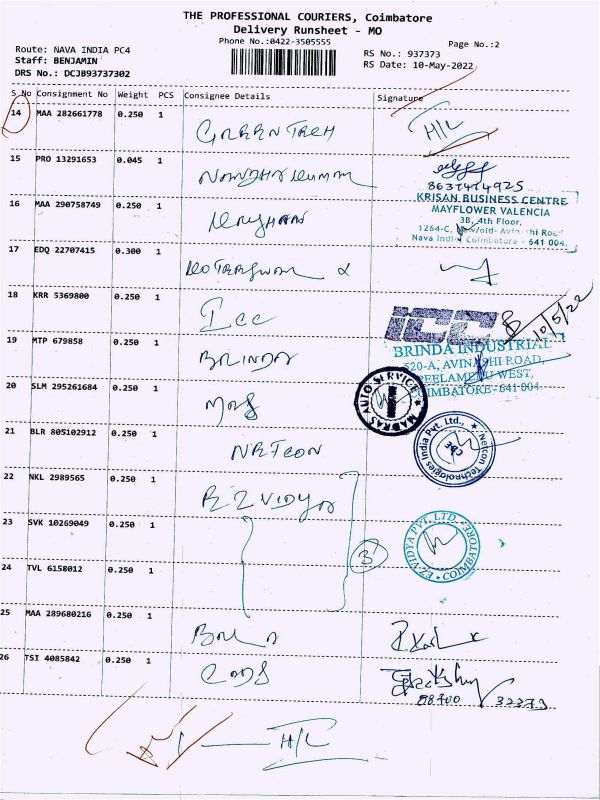 THE PROFESSIONAL COURIERS, Coimbatore
Delivery Runsheet - MO
Phone No.:0422-3505555
Page No.:2
Route: NAVA INDIA PC4
Staff: BENJAMIN
DRS No.: DCJB93737302
RS No.: 937373
RS Date: 10-May-2022
S No Consignment No Weight PCS Consignee Details Signature
14 MAA 282661778 0.250 1 GREENTECH H/L
15 PRO 13291653 0.045 1
8637474925
KRISAN BUSINESS CENTRE
MAYFLOWER VALENCIA
3B, 4th Floor,
1264-C, New/old- Avinashi Road
Nava India Coimbatore - 641 004.
16 MAA 290758749 0.250 1
17 EDQ 22707415 0.300 1
18 KRR 5369800 0.250 1 ICC
ICC
10/5/22
19 MTP 679858 0.250 1 BRINDA
BRINDA INDUSTRIAL
520-A, AVINASHI ROAD,
PEELAMEDU WEST,
COIMBATORE - 641 004
20 SLM 295261684 0.250 1
MADRAS AUTO SERVICE
21 BLR 805102912 0.250 1 NETCON
Netcon Technologies India Pvt. Ltd.,
CBE
22 NKL 2989565 0.250 1 EZVIDYA
23 SVK 10269049 0.250 1
3
EZ-VIDYA PVT. LTD
COIMBATORE
24 TVL 6158012 0.250 1
25 MAA 289680216 0.250 1
26 TSI 4085842 0.250 1
98400 32373
1 — H/L